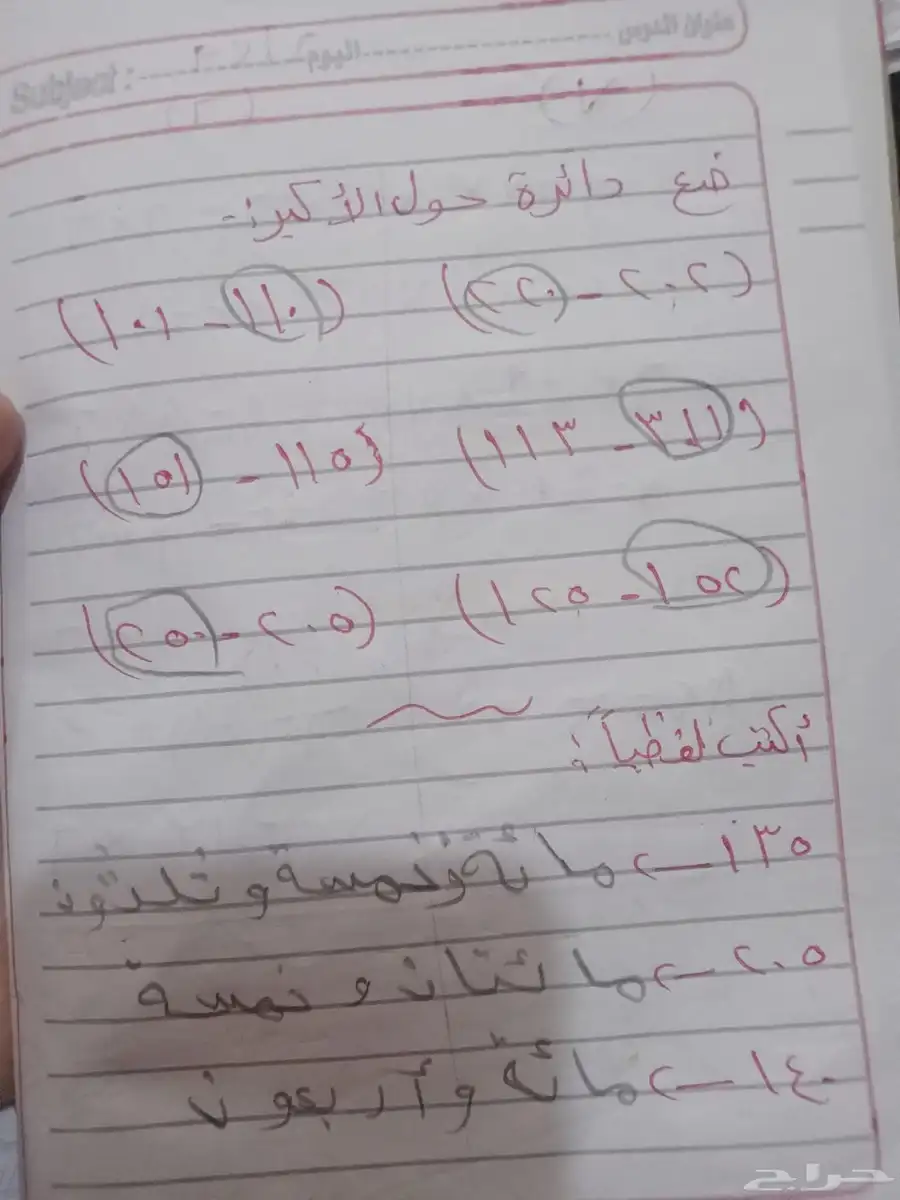 عنوان الدرس اليوم Subject :
ضع دائرة حول الأكبر:-
(٢٠٢ - ٢٢٠) (١١٠ - ١٠١)
(٣١١ - ١١٣) (١١٥ - ١٥١)
(١٥٢ - ١٢٥) (٢٠٥ - ٢٥٠)
أكتب لفظياً :
١٣٥ ← مائة وخمسة و ثلاثون
٢٠٥ ← مائتان و خمسة
١٤٠ ← مائة وأربعون
حراج